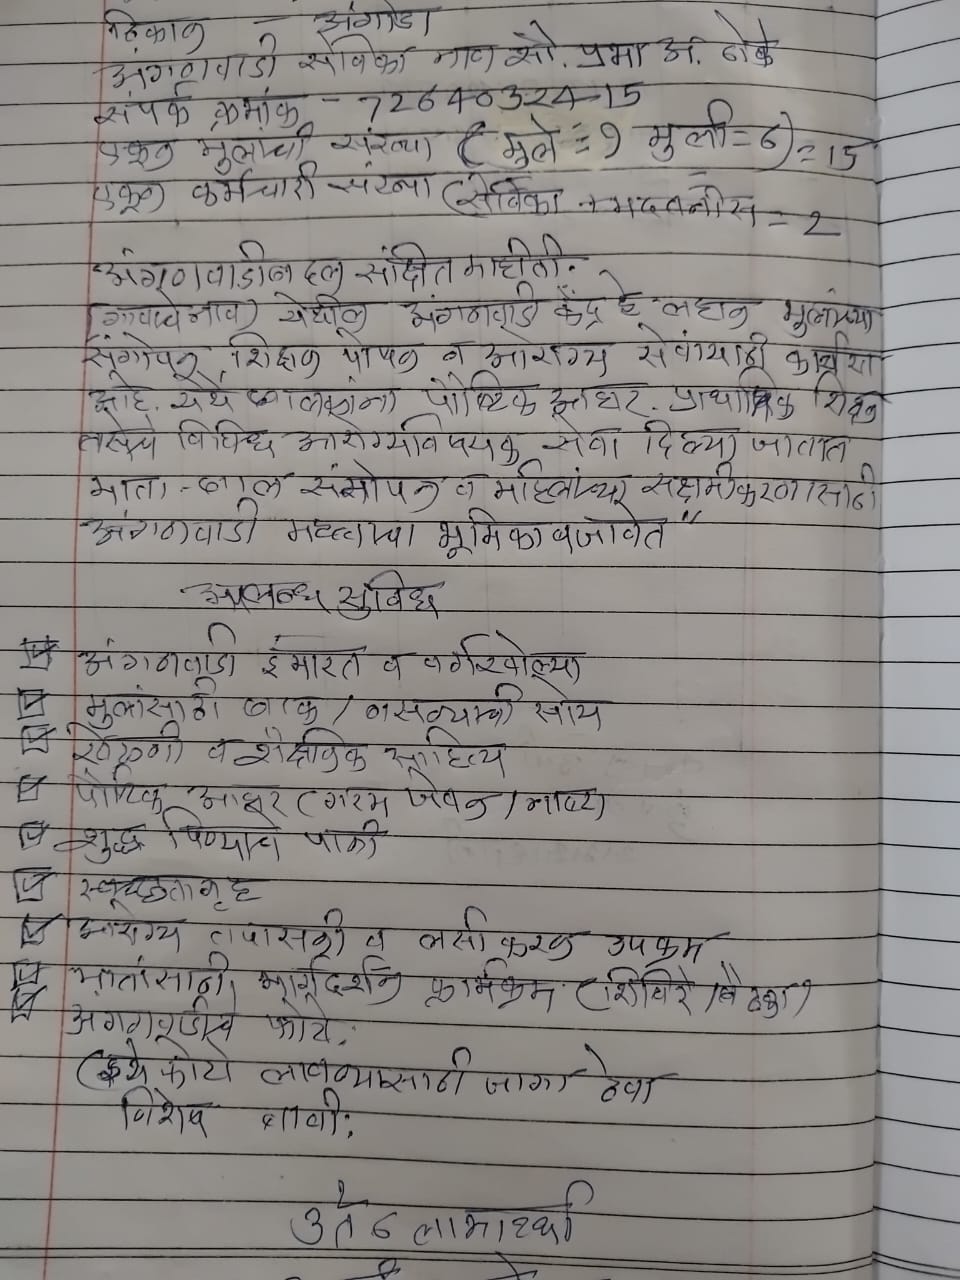 ठिकाण - अंगोडा
अंगणवाडी सेविका नाव सौ. प्रभा अ. ढोके
संपर्क क्रमांक - 7264032415
एकूण मुलांची संख्या (मुले = 9 मुली = 6) = 15
एकूण कर्मचारी संख्या (सेविका + मदतनीस = 2
अंगणवाडीबद्दल संक्षित माहीती.
(गावाचे नाव) येथील अंगणवाडी केंद्र हे लहान मुलांच्या
संगोपन, शिक्षण पोषण व आरोग्य सेवांसाठी कार्यरत
आहे. येथे बालकांना पौष्टिक आहार. प्राथमिक शिक्षण
तसेच विविध आरोग्यविषयक सेवा दिल्या जातात
माता-बाल संगोपन व महिलांच्या सक्षमीकरणासाठी
अंगणवाडी महत्वाचा भूमिका बजावते"
उपलब्ध सुविधा
☑ अंगणवाडी इमारत व वर्गखोल्या
☑ मुलांसाठी बाक / बसण्याची सोय
☑ खेळणी व शैक्षणिक साहित्य
☑ पौष्टिक आहार (गरम जेवण / नाष्टा)
☑ शुद्ध पिण्याचे पाणी
☑ स्वच्छतागृह
☑ आरोग्य तपासणी व लसीकरण उपक्रम
☑ मातांसाठी मार्गदर्शन कार्यक्रम (शिबिरे / बैठका)
☑ अंगणवाडीचे फोटो.
(इथे फोटो लावण्यासाठी जागा ठेवा
विशेष बाबी:
3 ते 6 लाभार्थी